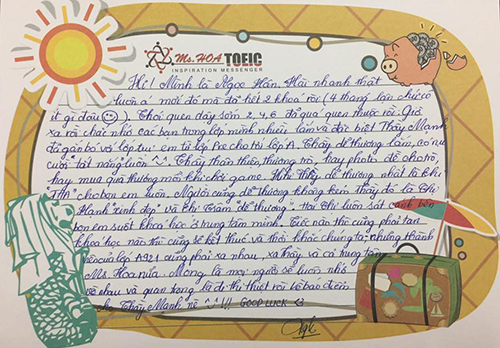 Ms. HOA TOEIC
INSPIRATION MESSENGER
Hi! Mình là Ngọc Hân. Hải nhanh thật
luôn á mới đó mà đã hết 2 khóa rồi (4 tháng lận chứ có
ít gì đâu). Thói quen dậy sớm 2, 4, 6 đã quá quen thuộc rồi. Giờ
xa rồi chắc nhớ các bạn trong lớp mình nhiều lắm và đặc biệt Thầy Mạnh
đã gắn bó với lớp tụi em từ lớp Pre cho tới lớp A. Thầy dễ thương lắm, có nụ
cười "tỏa nắng" luôn ^^. Thầy thân thiện, thương trò, hay photo đề cho trò,
hay mua quà thưởng mỗi khi chơi game. Hihi Thầy dễ thương nhất là khi
cho bọn em luôn. Người cũng dễ thương không kém Thầy đó là Chị
Hạnh "xinh đẹp" và Chị Trâm dễ thương. Hai Chị luôn sát cánh bên
bọn em suốt khóa học ở trung tâm mình. Cuộc vui nào cũng phải tàn
khóa học nào thì cũng sẽ kết thúc và thời khắc chúng ta, những thành
viên của lớp A921 cũng phải xa nhau, xa thầy và cả trung tâm
Ms. Hoa nữa. Mong là mọi người sẽ luôn nhớ
về nhau và quan trọng là đi thi thiệt rồi về báo điểm
cho Thầy Mạnh nè ^^!!! GOOD LUCK <3